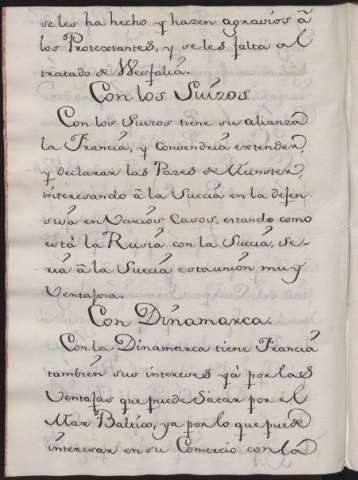 se les ha hecho y hazen agravios â
los Protextantes, y se les falta al
tratado de Wesfalia.
Con los Suizos
Con los Suizos tiene su alianza
la Francia, y Convendria extender,
y declarar las Pazes de Munster,
interesando â la Suecia en la defen-
siva en varios Casos, estando como
está la Rusia con la Suecia, se-
ria â la Suecia esta union muy
Ventajosa.
Con Dinamarca.
Con la Dinamarca tiene Francia
tambien sus intereses ya por las
Ventajas que puede Sacar por el
Mar Baltico, ya por lo que puede
interesar en su Comercio con la